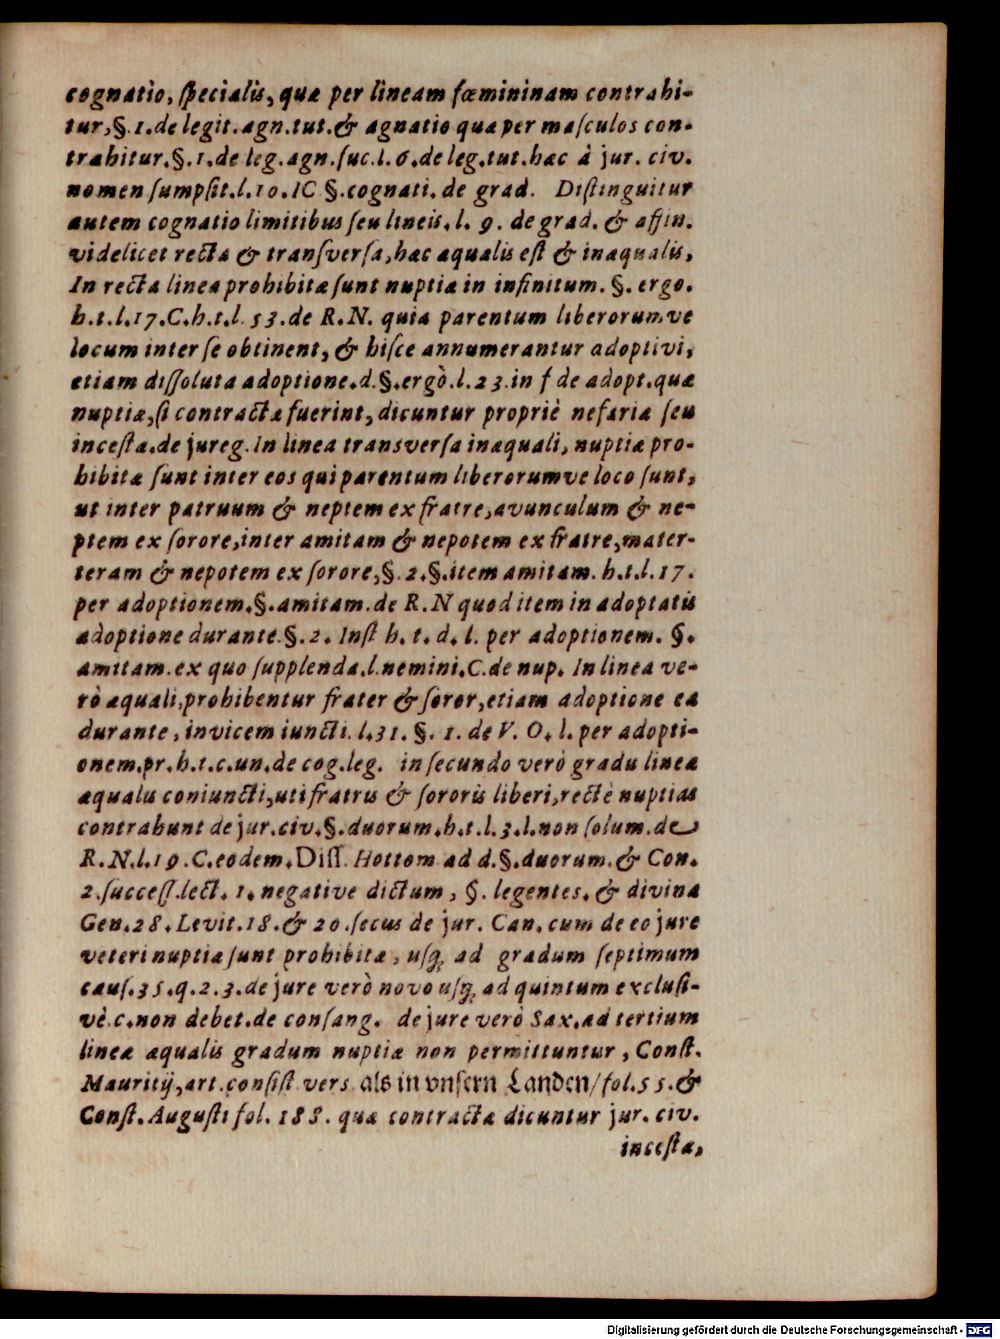 cognatio, ſpecialis, quæ per lineam fœmininam contrahi-
tur,§.1.de legit.agn.tut.& agnatio quæ per maſculos con-
trahitur.§.1.de leg.agn.ſuc.l.6.de leg.tut.hæc à jur. civ.
nomen ſumpſit.l.10.IC §.cognati.de grad. Diſtinguitur
autem cognatio limitibus ſeu lineis.l. 9. de grad.& affin.
videlicet recta & tranſverſa,hæc æqualis eſt & inæqualis,
In recta linea prohibitæ ſunt nuptiæ in infinitum. §. ergo.
h.t.l.17.C.h.t.l.53.de R.N. quia parentum liberorumve
locum inter ſe obtinent, & hiſce annumerantur adoptivi,
etiam diſſoluta adoptione.d.§.ergò.l.23.in f de adopt.quæ
nuptiæ,ſi contractæ fuerint, dicuntur propriè nefariæ ſeu
inceſtæ.de jureg.In linea transverſa inæquali, nuptiæ pro-
hibitæ ſunt inter eos qui parentum liberorumve loco ſunt,
ut inter patruum & neptem ex fratre,avunculum & ne-
ptem ex ſorore,inter amitam & nepotem ex fratre,mater-
teram & nepotem ex ſorore,§.2.§.item amitam. h.t.l.17.
per adoptionem.§.amitam.de R.N quod item in adoptatis
adoptione durante.§.2. Inſt h. t. d. l. per adoptionem. §.
amitam.ex quo ſupplenda.l.nemini.C.de nup. In linea ve-
rò æquali,prohibentur frater & ſoror,etiam adoptione ea
durante, invicem iuncti.l.31.§. 1. de V. O. l. per adopti-
onem.pr.h.t.c.un.de cog.leg. in ſecundo verò gradu lineæ
æqualis coniuncti,uti fratris & ſororis liberi,rectè nuptias
contrahunt de jur.civ.§.duorum.h.t.l.3.l.non ſolum.de
R.N.l.19.C.eodem.Diſſ. Hottom ad d.§.duorum.& Con.
2.ſucceſſ.lect. 1. negative dictum, §. legentes. & divina
Gen.28.Levit.18.& 20.ſecus de jur. Can. cum de eo jure
veteri nuptiæ ſunt prohibitæ, uſq; ad gradum ſeptimum
cauſ.35.q.2.3.de jure verò novo uſq; ad quintum excluſi-
vè.c.non debet.de conſang. de jure verò Sax.ad tertium
lineæ æqualis gradum nuptiæ non permittuntur, Conſt.
Mauritij,art.conſiſt vers als in vnſern Landen/fol.55.&
Conſt.Auguſti fol. 188. quæ contractæ dicuntur jur. civ.
inceſtæ,
Digitalisierung gefördert durch die Deutsche Forschungsgemeinschaft - DFG